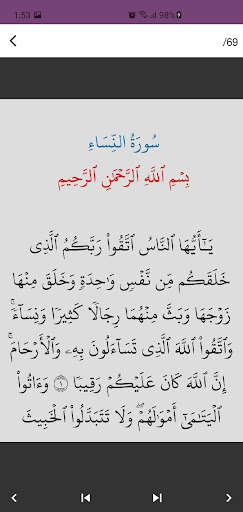 1:53 98%
/69
سُورَةُ النِّسَاءِ
بِسْمِ ٱللَّهِ ٱلرَّحْمَٰنِ ٱلرَّحِيمِ
يَـٰٓأَيُّهَا ٱلنَّاسُ ٱتَّقُوا۟ رَبَّكُمُ ٱلَّذِى
خَلَقَكُم مِّن نَّفْسٍ وَٰحِدَةٍ وَخَلَقَ مِنْهَا
زَوْجَهَا وَبَثَّ مِنْهُمَا رِجَالًا كَثِيرًا وَنِسَآءً ۚ
وَٱتَّقُوا۟ ٱللَّهَ ٱلَّذِى تَسَآءَلُونَ بِهِۦ وَٱلْأَرْحَامَ ۚ
إِنَّ ٱللَّهَ كَانَ عَلَيْكُمْ رَقِيبًا ۝١ وَءَاتُوا۟
ٱلْيَتَـٰمَىٰٓ أَمْوَٰلَهُمْ ۖ وَلَا تَتَبَدَّلُوا۟ ٱلْخَبِيثَ